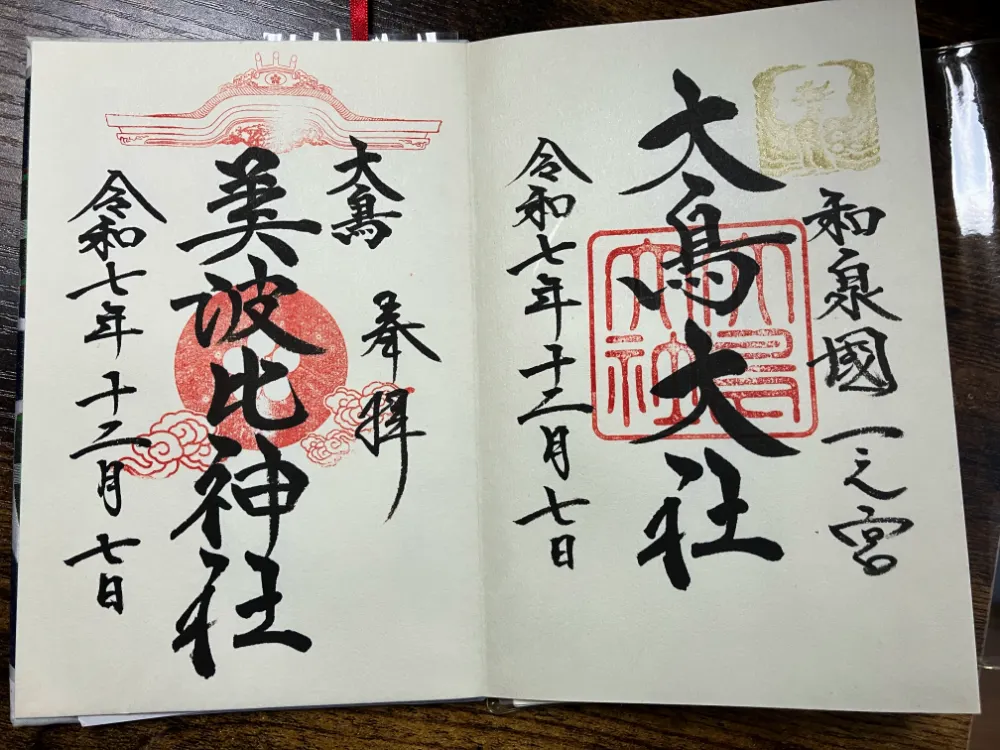 和泉國一之宮
大鳥大社
大鳥大社
令和七年十二月七日
大鳥 奉拝
美波比神社
令和七年十二月七日